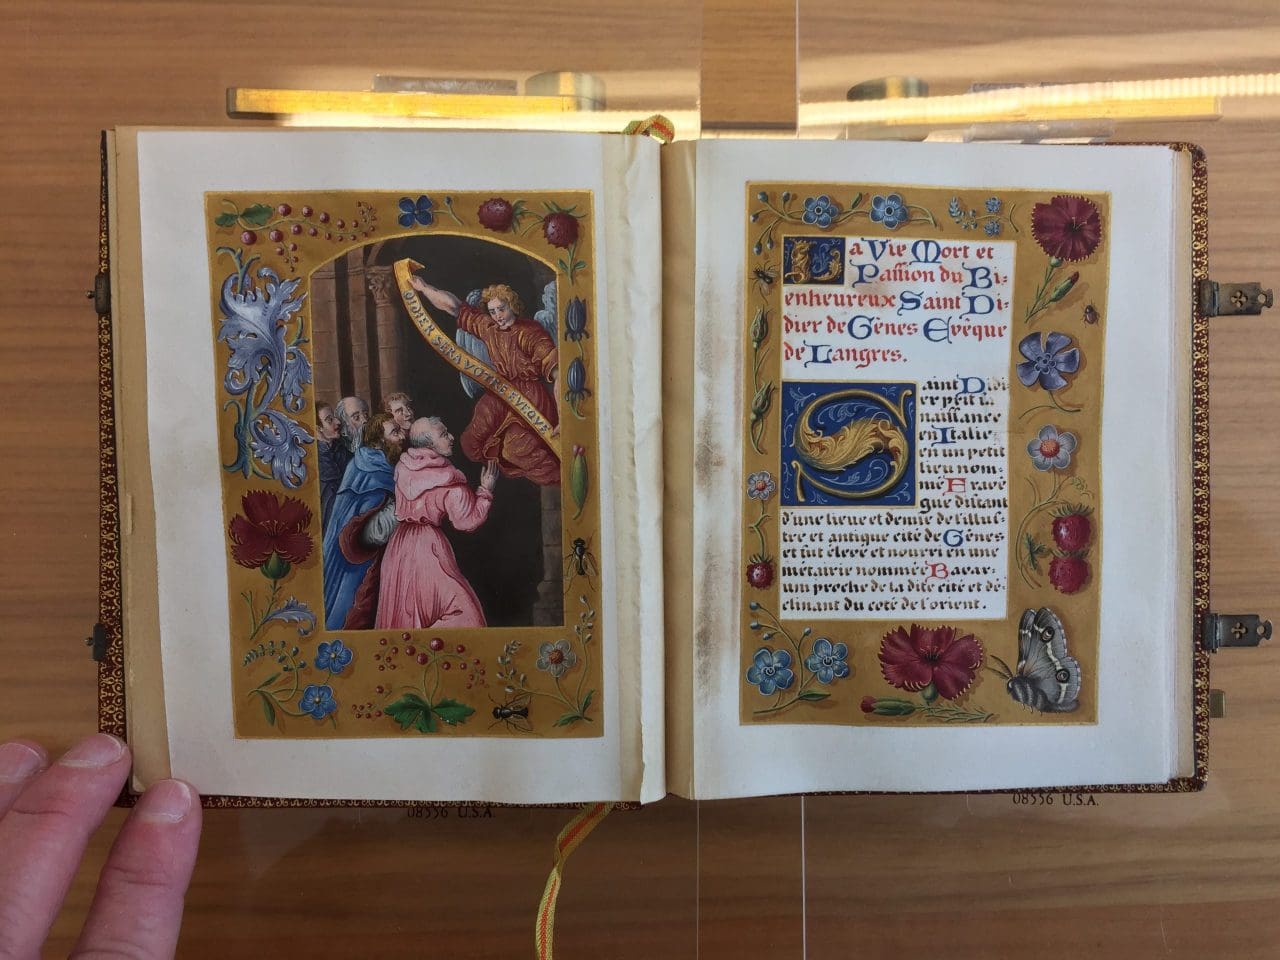 DIDIER SERA VOTRE EVEQUE
La Vie Mort et
Passion du Bi-
enheureux Saint Di-
dier de Gênes Evêque
de Langres.
Saint Didi
er prit sa
naissance
en Italie
en un petit
lieu nom-
mé Bavé
que distant
d'une lieue et demie de l'illus-
tre et antique cité de Gênes
et fut élevé et nourri en une
métairie nommée Bavar.
um proche de la dite cité et dé-
clinant du coté de l'orient.
08556 U.S.A.
08556 U.S.A.